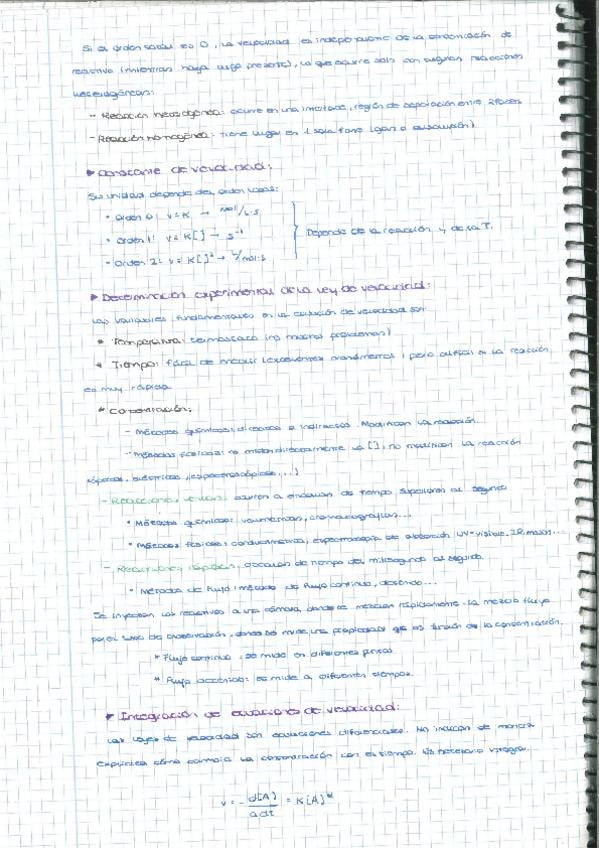 Si el orden total es 0, la velocidad es independiente de la concentración de
reactivo (mientras haya algo presente), lo que ocurre solo con algunas reacciones
heterogéneas:
- Reacción heterogénea: ocurre en una interfase, región de separación entre 2 fases
- Reacción homogénea: tiene lugar en 1 sola fase (gas o disolución)
▸ Constante de velocidad:
Su unidad depende del orden total:
• Orden 0: v=K → mol/L·s
• Orden 1: v=K[] → s⁻¹
- Orden 2: v=K[]² → L/mol·s
} Depende de la reacción y de la T.
▸ Determinación experimental de la ley de velocidad:
Las variables fundamentales en la ecuación de velocidad son:
* Temperatura: termostato (no muchos problemas)
* Tiempo: fácil de medir (excelentes cronómetros), pero difícil si la reacción
es muy rápida
* Concentración:
- Métodos químicos: directos e indirectos. Modifican la reacción.
- Métodos físicos: no miden directamente la [], no modifican la reacción
(ópticos, eléctricos, espectroscópicos,...)
- Reacciones lentas: ocurren a escalas de tiempo superiores al segundo
• Métodos químicos: volumétricos, cromatográficos...
• Métodos físicos: conductimetría, espectroscopía de absorción UV-visible, IR, masas...
- Reacciones rápidas: escalas de tiempo del milisegundo al segundo.
• Métodos de flujo: método de flujo continuo, detenido...
Se inyectan los reactivos a una cámara, donde se mezclan rápidamente. La mezcla fluye
por el tubo de observación, donde se mide una propiedad que es función de la concentración.
* Flujo continuo: se mide en diferentes puntos
* Flujo detenido: se mide a diferentes tiempos.
▸ Integración de ecuaciones de velocidad:
Las leyes de velocidad son ecuaciones diferenciales. No indican de manera
explícita cómo cambia la concentración con el tiempo. Es necesario integrar.
v = - d[A]/a dt = K[A]ⁿ